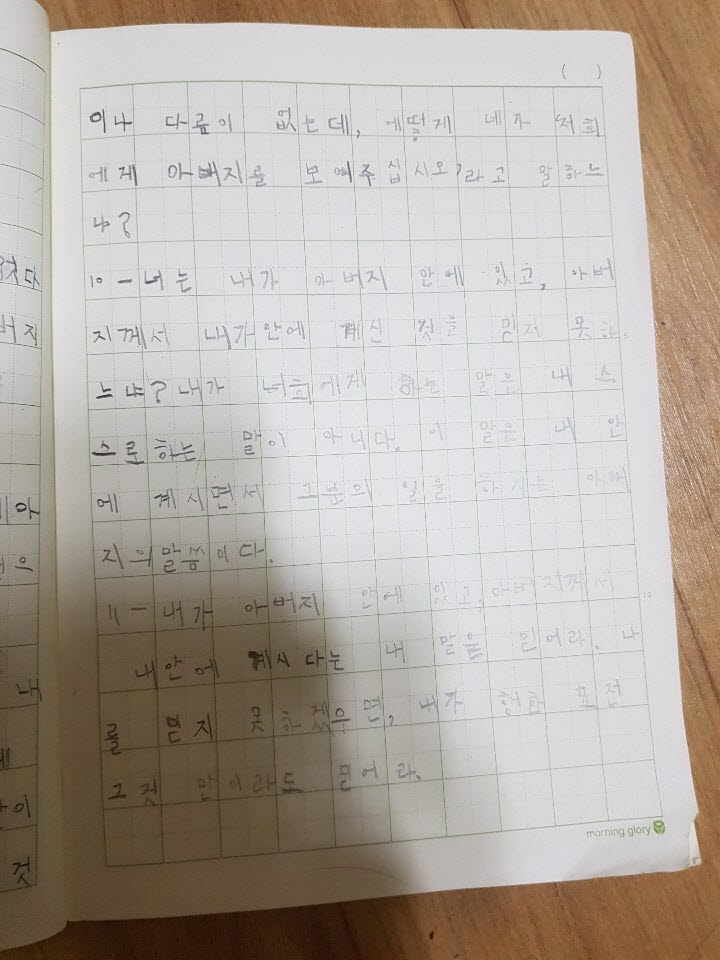 ( )
이나 다름이 없는데, 에떻게 네가 '저희
에게 아버지를 보여주십시오'라고 말하느
냐?
10 - 너는 내가 아버지 안에 있고, 아버
지께서 내가안에 계신 것을 믿지 못하
느냐? 내가 너희에게 하는 말은 내 스
스로하는 말이 아니다. 이 말은 내 안
에 계시면서 그분의 일을 하시는 아버
지의말씀이다.
11 - 내가 아버지 안에 있고, 아버지께서
내안에 계시다는 내 말을 믿어라. 나
를 믿지 못하겠으면, 내가 행한
그것 만이라도 믿어라.
morning glory
것다
버지
아
으
내
이
것